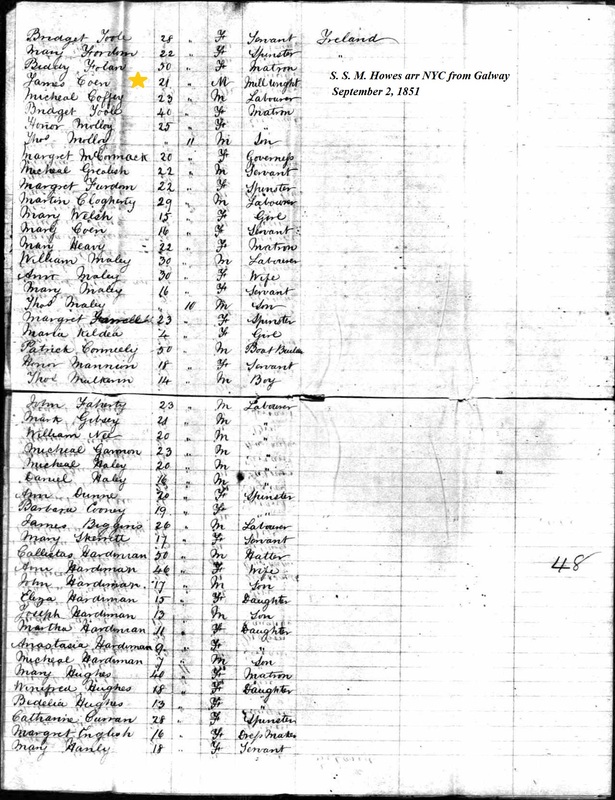 Bridget Toole 28 " F Servant Ireland
Mary Fordom 22 " F Spinster "
Biddy Folan 50 " F Matron
James Coen 21 " M Mill Wright
S. S. M. Howes arr NYC from Galway
September 2, 1851
Micheal Coffey 23 " M Labourer
Bridget Toole 40 " F Matron
Honor Molloy 25 " F "
Thos Molloy " 11 M Son
Margret McCormack 20 " F Governess
Micheal Grealish 22 " M Servant
Margret Furdom 22 " F Spinster
Martin Clogherty 29 " M Labourer
Mary Welsh 15 " F Girl
Mary Coen 16 " F Servant
Mary Heavy 22 " F Matron
William Maley 30 " M Labourer
Ann Maley 30 " F Wife
Mary Maley 16 " F Servant
Thos Maley " 10 M Son
Margret 23 " F Spinster
Maria Kildea 4 " F Girl
Patrick Conneely 50 " M Boat Builder
Honor Mannion 18 " F Servant
Thos Mulkerin 14 " M Boy
John Faherty 23 " M Labourer
Mark 21 " M "
William Nee 20 " M "
Micheal Gannon 23 " M "
Micheal Haley 20 " M "
Daniel Haley 16 " M "
Ann Dunne 20 " F Spinster
Barbara Cooney 19 " F "
James Biggins 26 " M Labourer
Mary Skerrett 17 " F Servant
Callistas Hardiman 50 " M Hatter
48
Ann Hardiman 46 " F Wife
John Hardiman 17 " M Son
Eliza Hardiman 15 " F Daughter
Joseph Hardiman 13 " M Son
Martha Hardiman 11 " F Daughter
Anastasia Hardiman 9 " F "
Micheal Hardiman 7 " M Son
Mary Hughes 40 " F Matron
Winifred Hughes 18 " F Daughter
Bidelia Hughes 13 " F "
Catharine Curran 28 " F Spinster
Margret English 16 " F Dress Maker
Mary Hanly 18 " F Servant